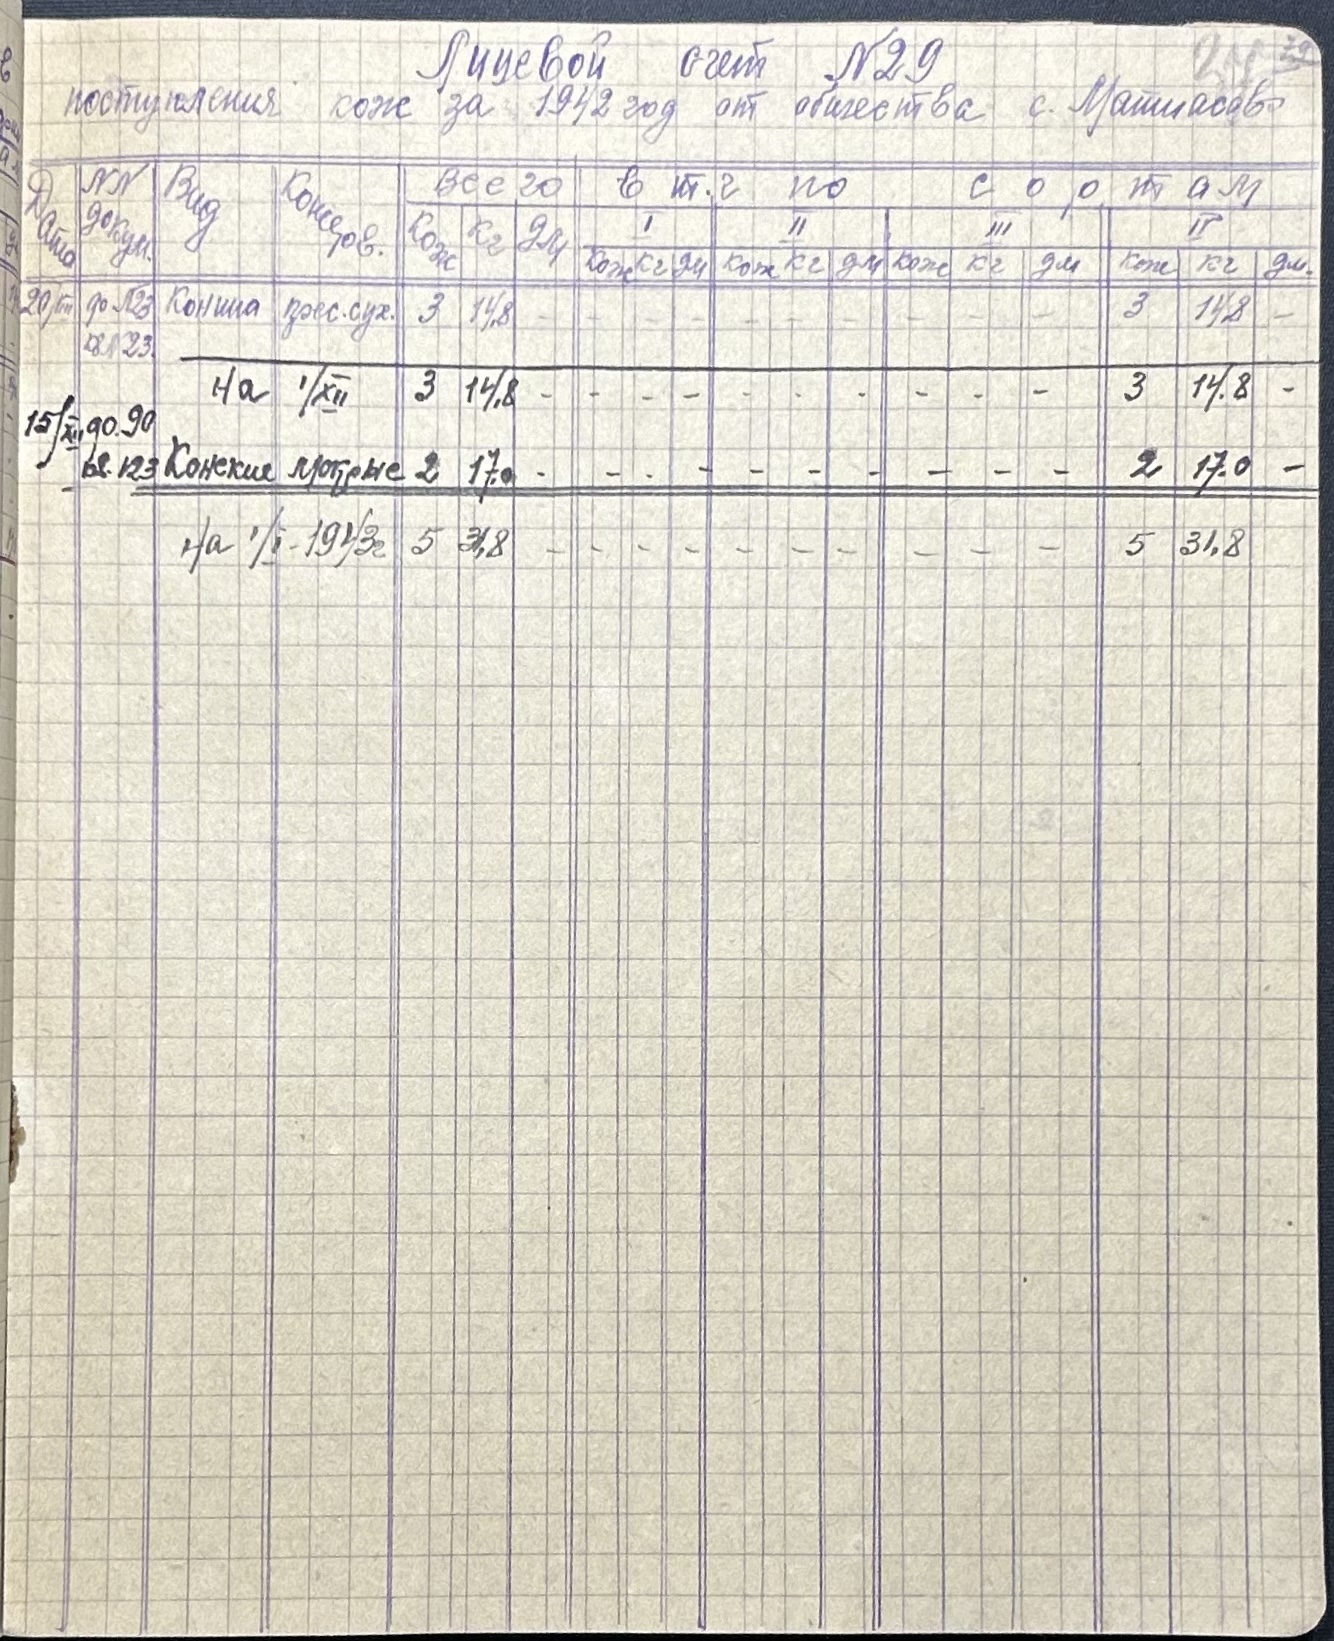 Лицевой счет N29
поступления кож за 1942 год от общества с. Матиясово
Дата NN докум. Вид Консеров. Всего в т.ч по сортам
Кож Кг ДМ I II III IV
кож кг дм кож кг дм кож кг дм кож кг дм.
до N23 Конина прес.сух. 3 14,8 - - - - - - - - - - 3 14,8 -
кв N23.
На 1/XII 3 14,8 - - - - - - - - - - 3 14.8 -
15/XII до. 90
кв. 123 Конские мокрые 2 17.0 - - - - - - - - - - 2 17.0 -
На 1/I - 1943г 5 31,8 - - - - - - - - - - 5 31,8